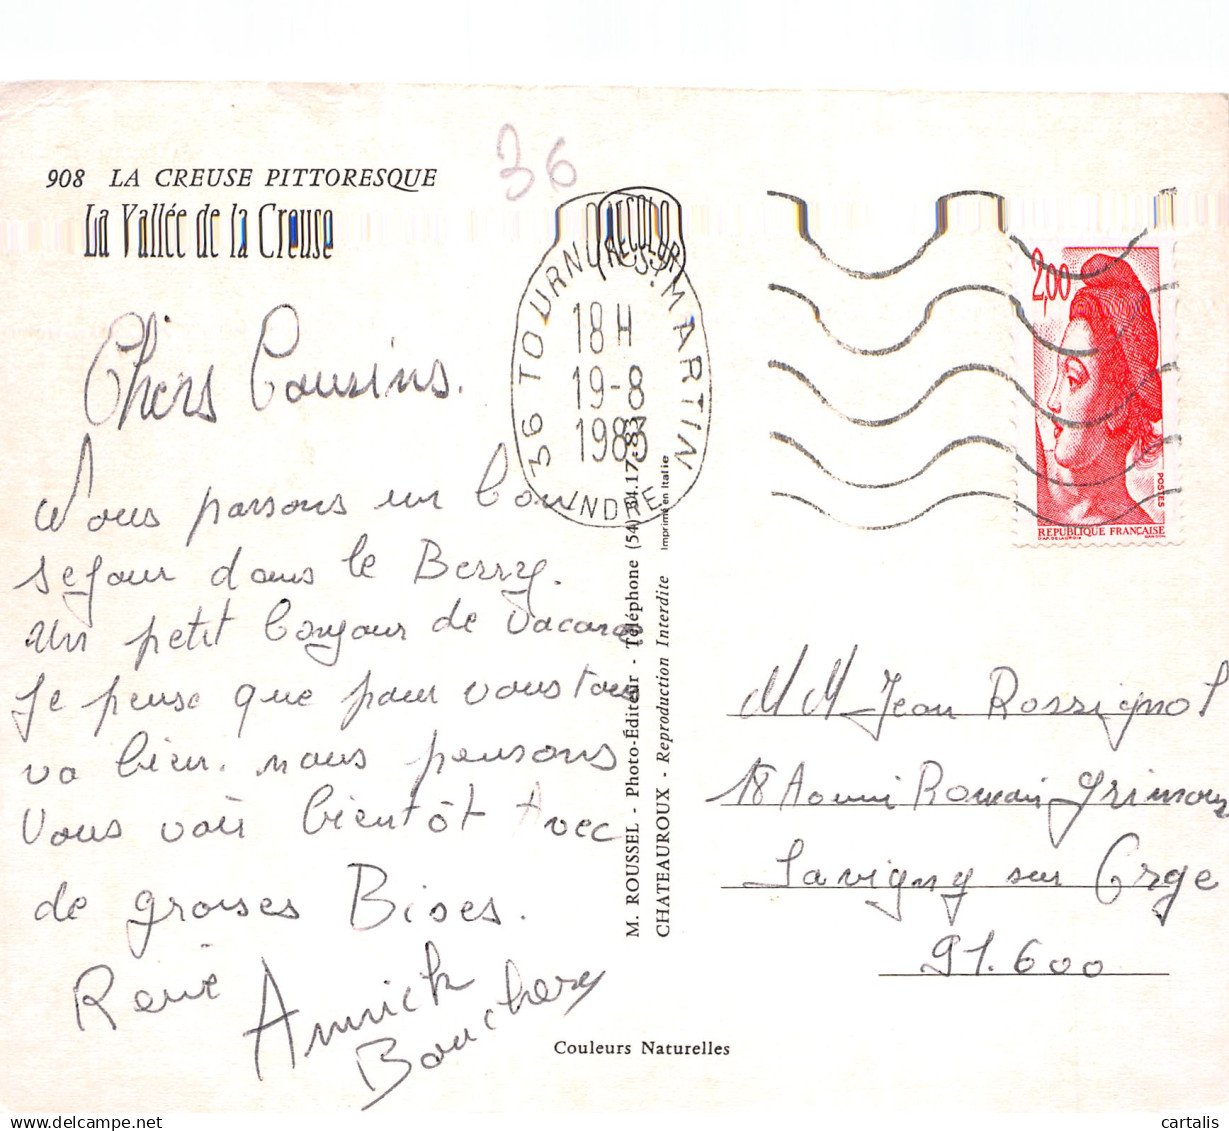 908 LA CREUSE PITTORESQUE
La Vallée de la Creuse
36
Chers Cousins.
Nous passons un bon
sejour dans le Berry.
un petit bonjour de vacances
Je pense que pour vous tous
va bien. nous pensons
vous voir bientôt Avec
de grosses Bises.
René Annick
Bouchery
36 TOURNON-ST-MARTIN
18 H
19-8
1983
INDRE
M. ROUSSEL - Photo-Éditeur - Téléphone (54)
CHATEAUROUX - Reproduction Interdite Imprimé en Italie
2,00
POSTES
REPUBLIQUE FRANÇAISE
M M Jean Rossignol
18 Romain
Savigny sur Orge
91.600
Couleurs Naturelles
cartalis